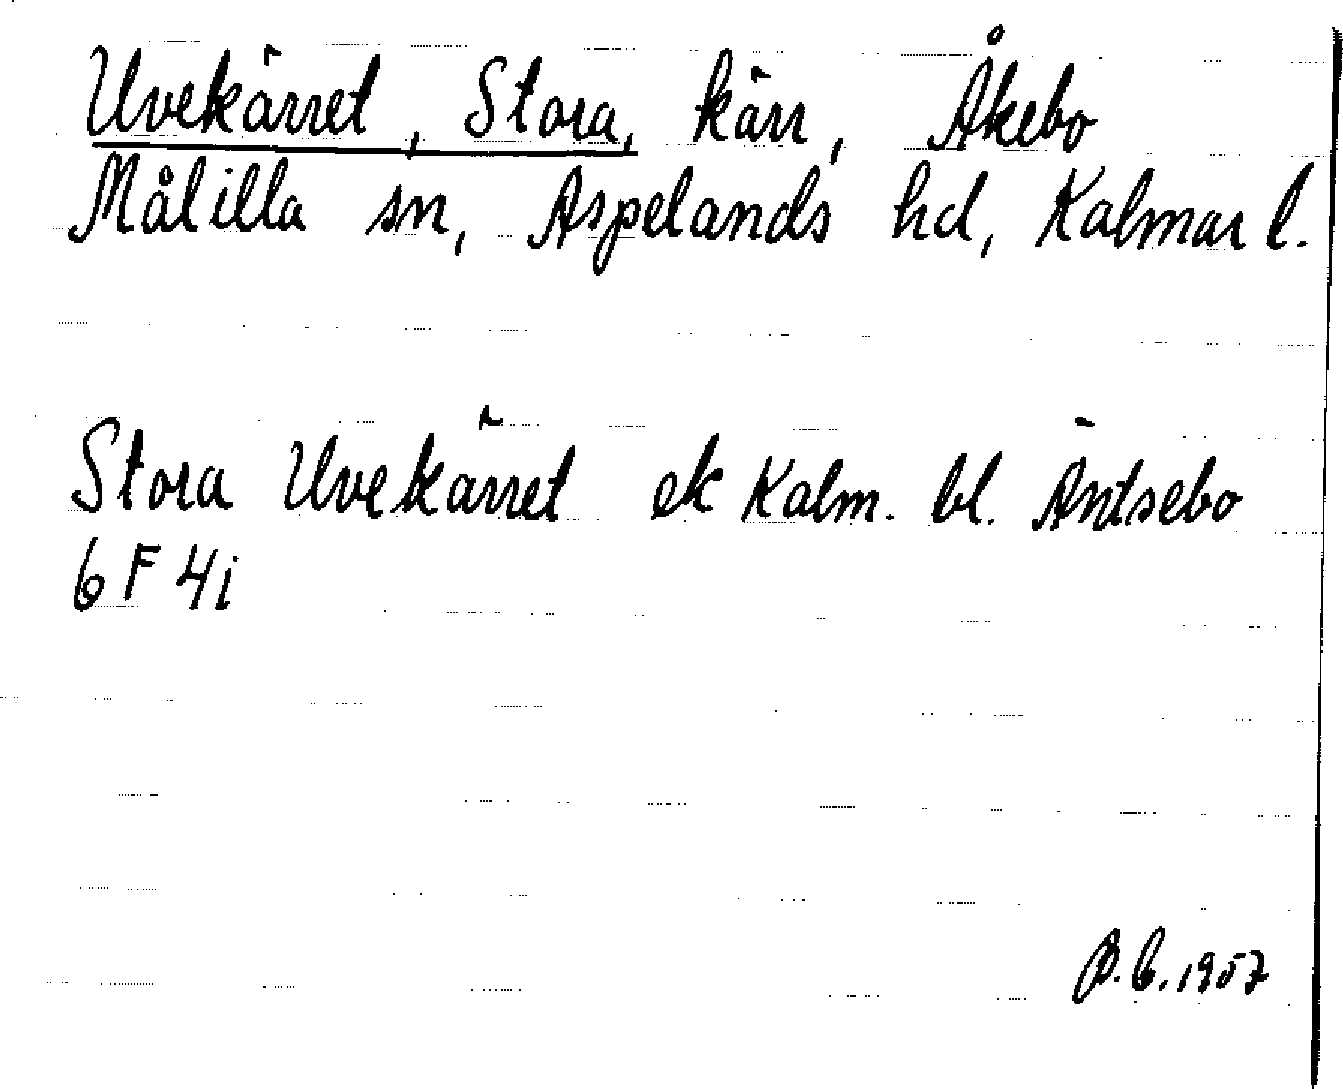 Uvekärret, Stora, kärr, Åkebo
Målilla sn, Aspelands hd, Kalmar l.
Stora Uvekärret ek Kalm. bl. Äntsebo
6 F 4i
B. 1957